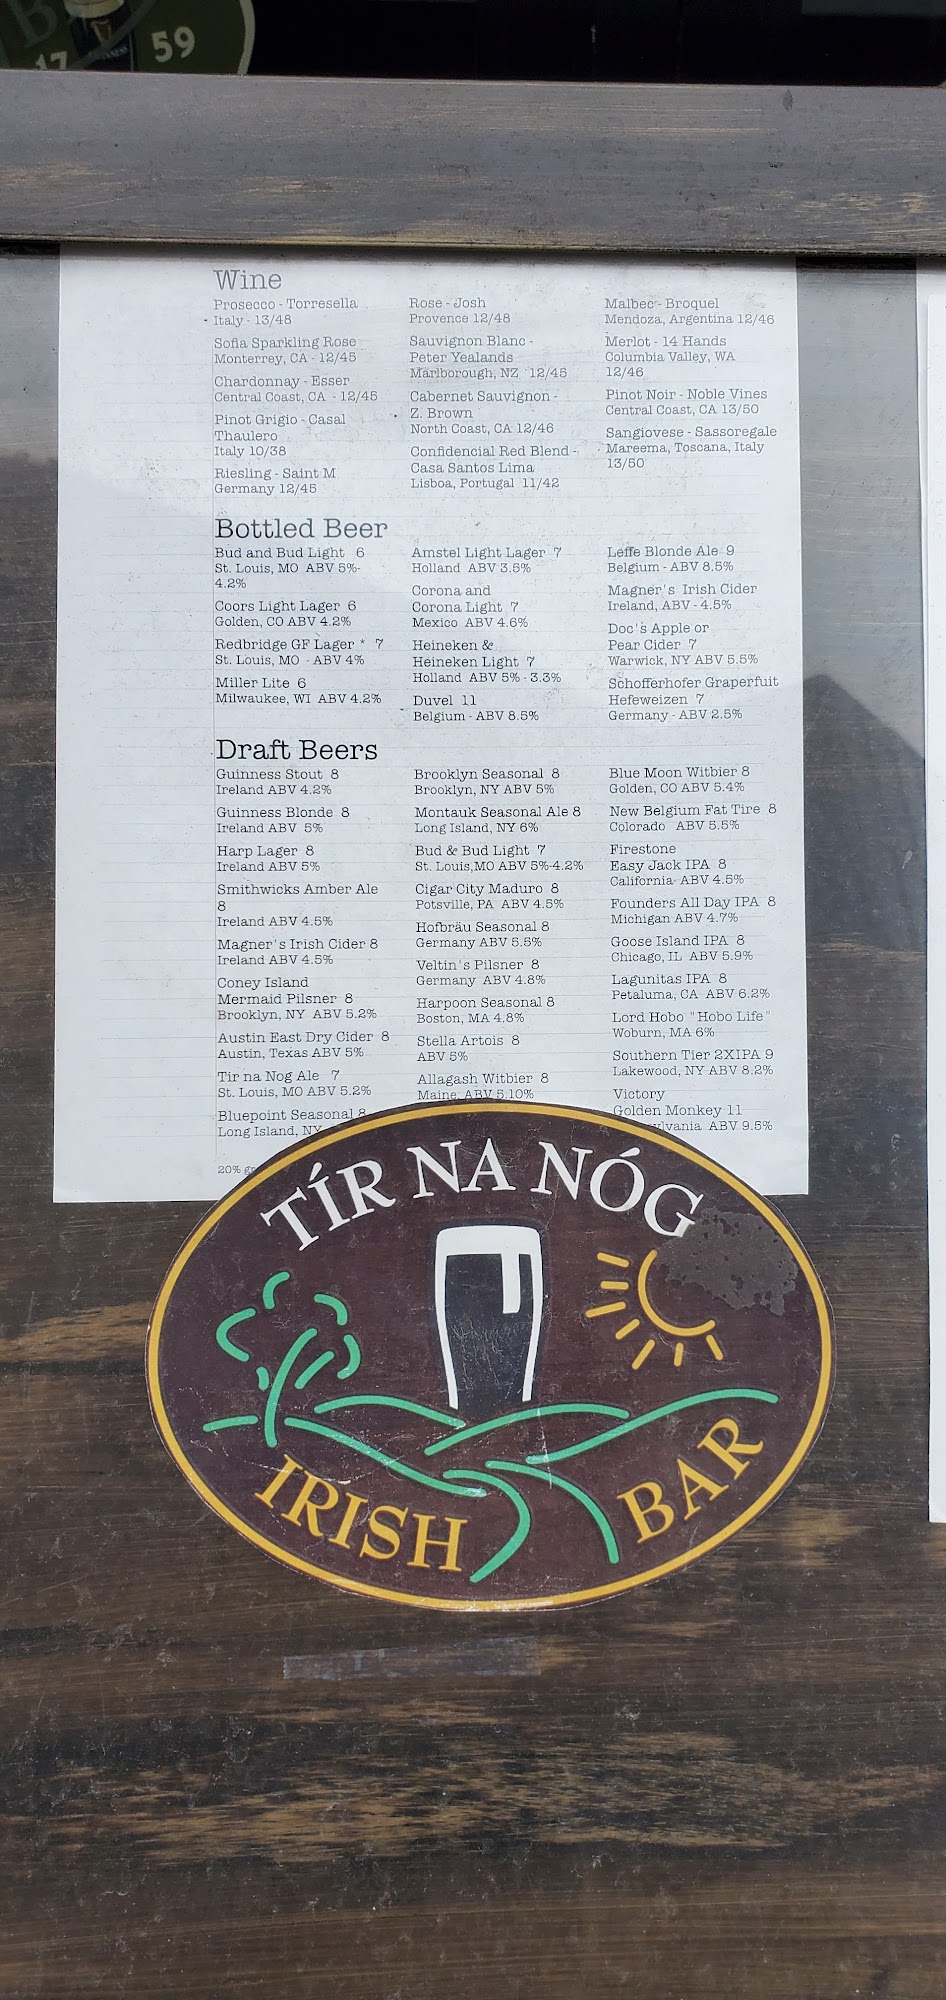 17 59
Wine
Prosecco - Torresella
Italy - 13/48
Sofia Sparkling Rose
Monterrey, CA - 12/45
Chardonnay - Esser
Central Coast, CA - 12/45
Pinot Grigio - Casal
Thaulero
Italy 10/38
Riesling - Saint M
Germany 12/45
Rose - Josh
Provence 12/48
Sauvignon Blanc -
Peter Yealands
Marlborough, NZ 12/45
Cabernet Sauvignon -
Z. Brown
North Coast, CA 12/46
Confidencial Red Blend -
Casa Santos Lima
Lisboa, Portugal 11/42
Malbec - Broquel
Mendoza, Argentina 12/46
Merlot - 14 Hands
Columbia Valley, WA
12/46
Pinot Noir - Noble Vines
Central Coast, CA 13/50
Sangiovese - Sassoregale
Mareema, Toscana, Italy
13/50
Bottled Beer
Bud and Bud Light 6
St. Louis, MO ABV 5%-
4.2%
Coors Light Lager 6
Golden, CO ABV 4.2%
Redbridge GF Lager * 7
St. Louis, MO - ABV 4%
Miller Lite 6
Milwaukee, WI ABV 4.2%
Amstel Light Lager 7
Holland ABV 3.5%
Corona and
Corona Light 7
Mexico ABV 4.6%
Heineken &
Heineken Light 7
Holland ABV 5% - 3.3%
Duvel 11
Belgium - ABV 8.5%
Leffe Blonde Ale 9
Belgium - ABV 8.5%
Magner's Irish Cider
Ireland, ABV - 4.5%
Doc's Apple or
Pear Cider 7
Warwick, NY ABV 5.5%
Schofferhofer Graperfuit
Hefeweizen 7
Germany - ABV 2.5%
Draft Beers
Guinness Stout 8
Ireland ABV 4.2%
Guinness Blonde 8
Ireland ABV 5%
Harp Lager 8
Ireland ABV 5%
Smithwicks Amber Ale
8
Ireland ABV 4.5%
Magner's Irish Cider 8
Ireland ABV 4.5%
Coney Island
Mermaid Pilsner 8
Brooklyn, NY ABV 5.2%
Austin East Dry Cider 8
Austin, Texas ABV 5%
Tir na Nog Ale 7
St. Louis, MO ABV 5.2%
Bluepoint Seasonal 8
Long Island, NY
20%
Brooklyn Seasonal 8
Brooklyn, NY ABV 5%
Montauk Seasonal Ale 8
Long Island, NY 6%
Bud & Bud Light 7
St. Louis,MO ABV 5%-4.2%
Cigar City Maduro 8
Potsville, PA ABV 4.5%
Hofbräu Seasonal 8
Germany ABV 5.5%
Veltin's Pilsner 8
Germany ABV 4.8%
Harpoon Seasonal 8
Boston, MA 4.8%
Stella Artois 8
ABV 5%
Allagash Witbier 8
Maine, ABV 5.10%
Blue Moon Witbier 8
Golden, CO ABV 5.4%
New Belgium Fat Tire 8
Colorado ABV 5.5%
Firestone
Easy Jack IPA 8
California- ABV 4.5%
Founders All Day IPA 8
Michigan ABV 4.7%
Goose Island IPA 8
Chicago, IL ABV 5.9%
Lagunitas IPA 8
Petaluma, CA ABV 6.2%
Lord Hobo "Hobo Life"
Woburn, MA 6%
Southern Tier 2XIPA 9
Lakewood, NY ABV 8.2%
Victory
Golden Monkey 11
ABV 9.5%
TÍR NA NÓG
IRISH BAR